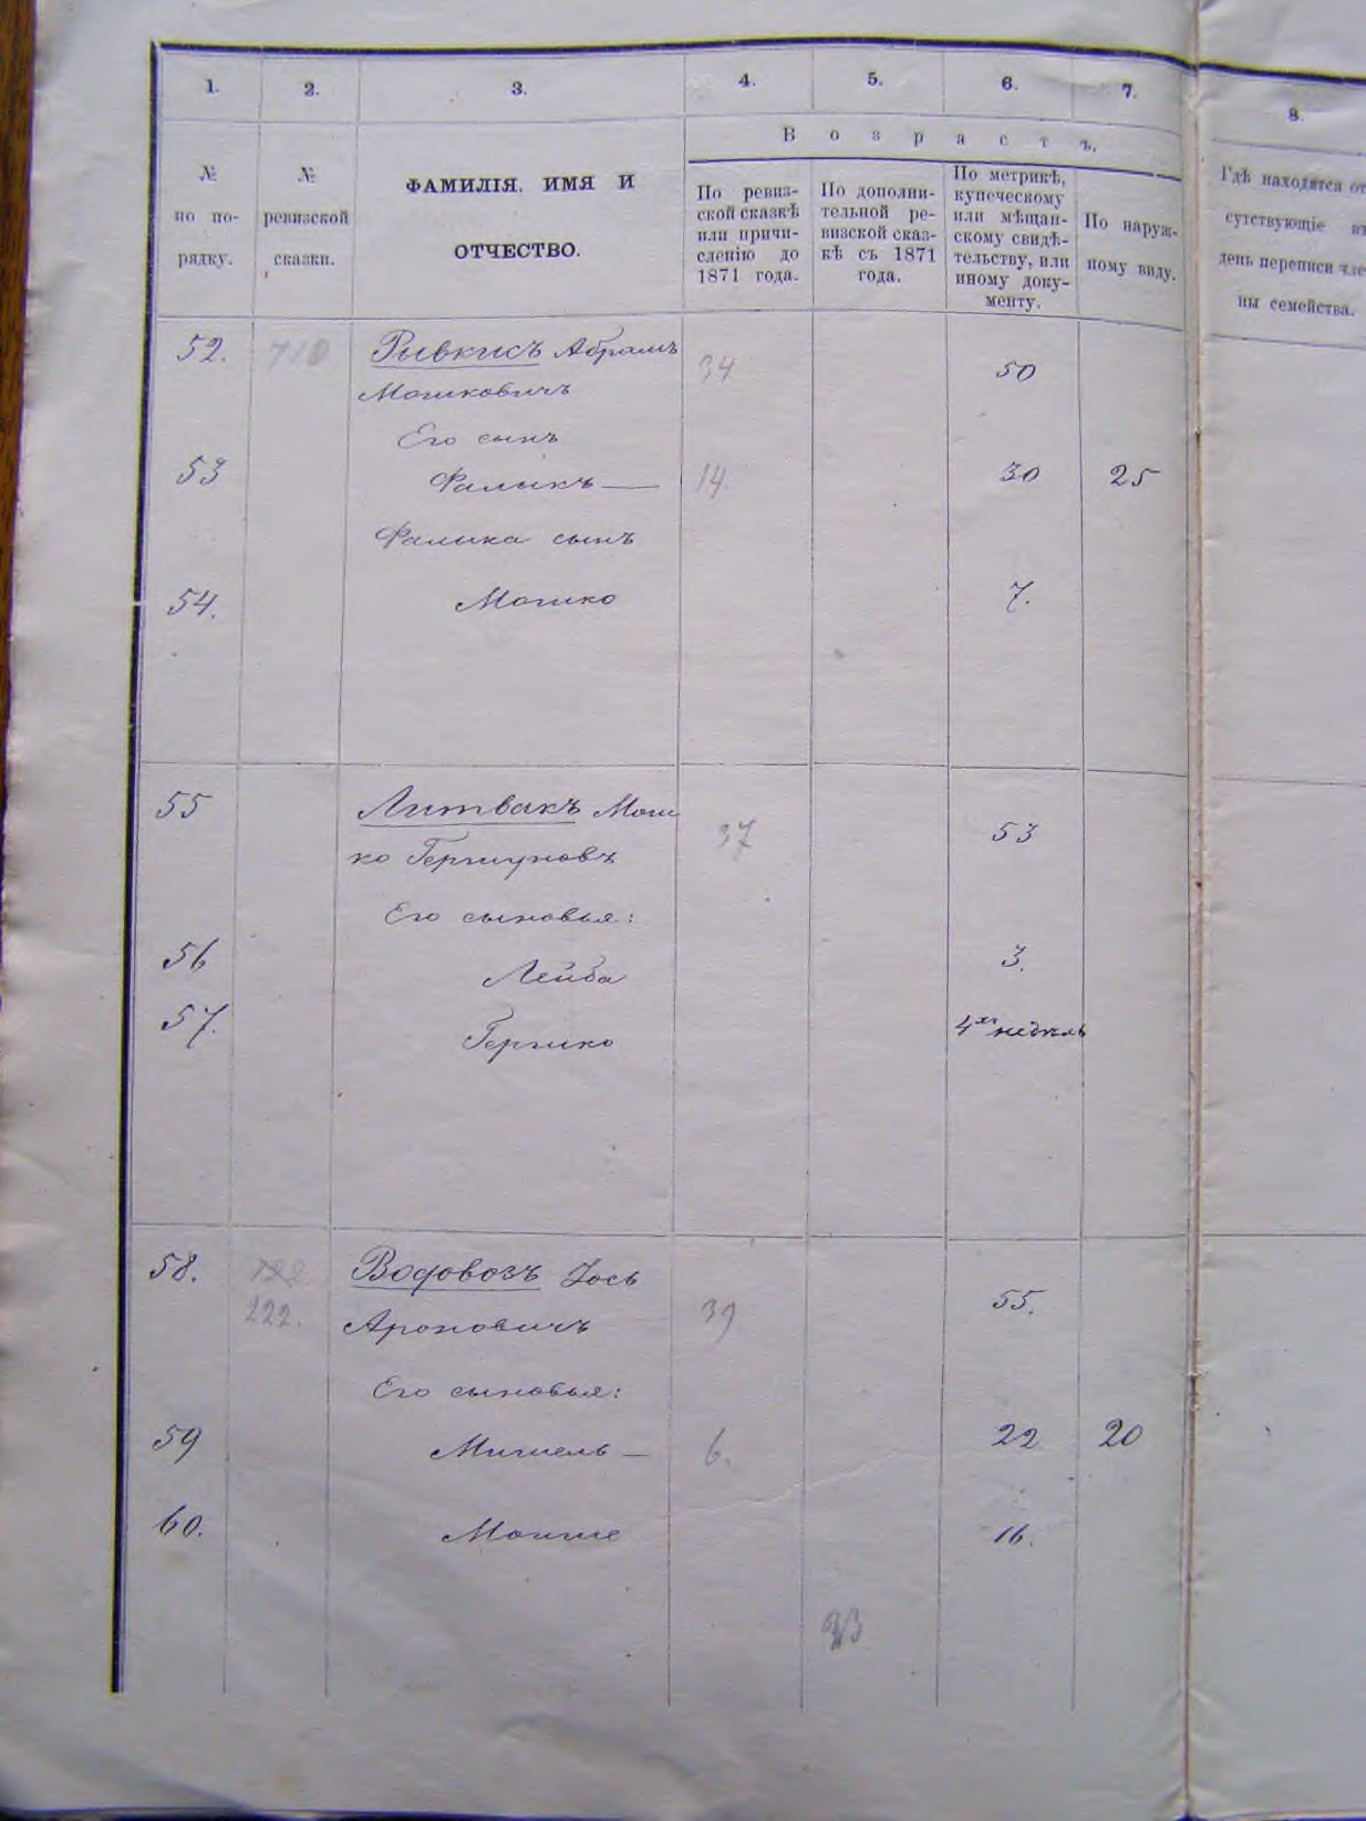 1. 2. 3. 4. 5. 6. 7. 8.
Возрастъ.
№ по порядку.
№ ревизской сказки.
ФАМИЛІЯ, ИМЯ И
ОТЧЕСТВО.
По ревиз-
ской сказкѣ
или причи-
сленію до
1871 года.
По дополни-
тельной ре-
визской сказ-
кѣ съ 1871
года.
По метрикѣ,
купеческому
или мѣщан-
скому свидѣ-
тельству, или
иному доку-
менту.
По наруж-
ному виду.
Гдѣ находятся от
сутствующіе въ
день переписи чле
ны семейства.
52. 710 Ривкисъ Абрамъ 34 50
Мошковичъ
Его сынъ
53 Фалыкъ — 14 30 25
Фалыка сынъ
54. Мошко 7.
55 Литвакъ Мош
ко Гершуновъ 37 53
Его сыновья:
56 Лейба 3.
57. Гершко 4хъ недѣль
58. Водовозъ Іось
222. Ароновичъ 39 55.
Его сыновья:
59 Мишель — 6. 22 20
60. Мошше 16.